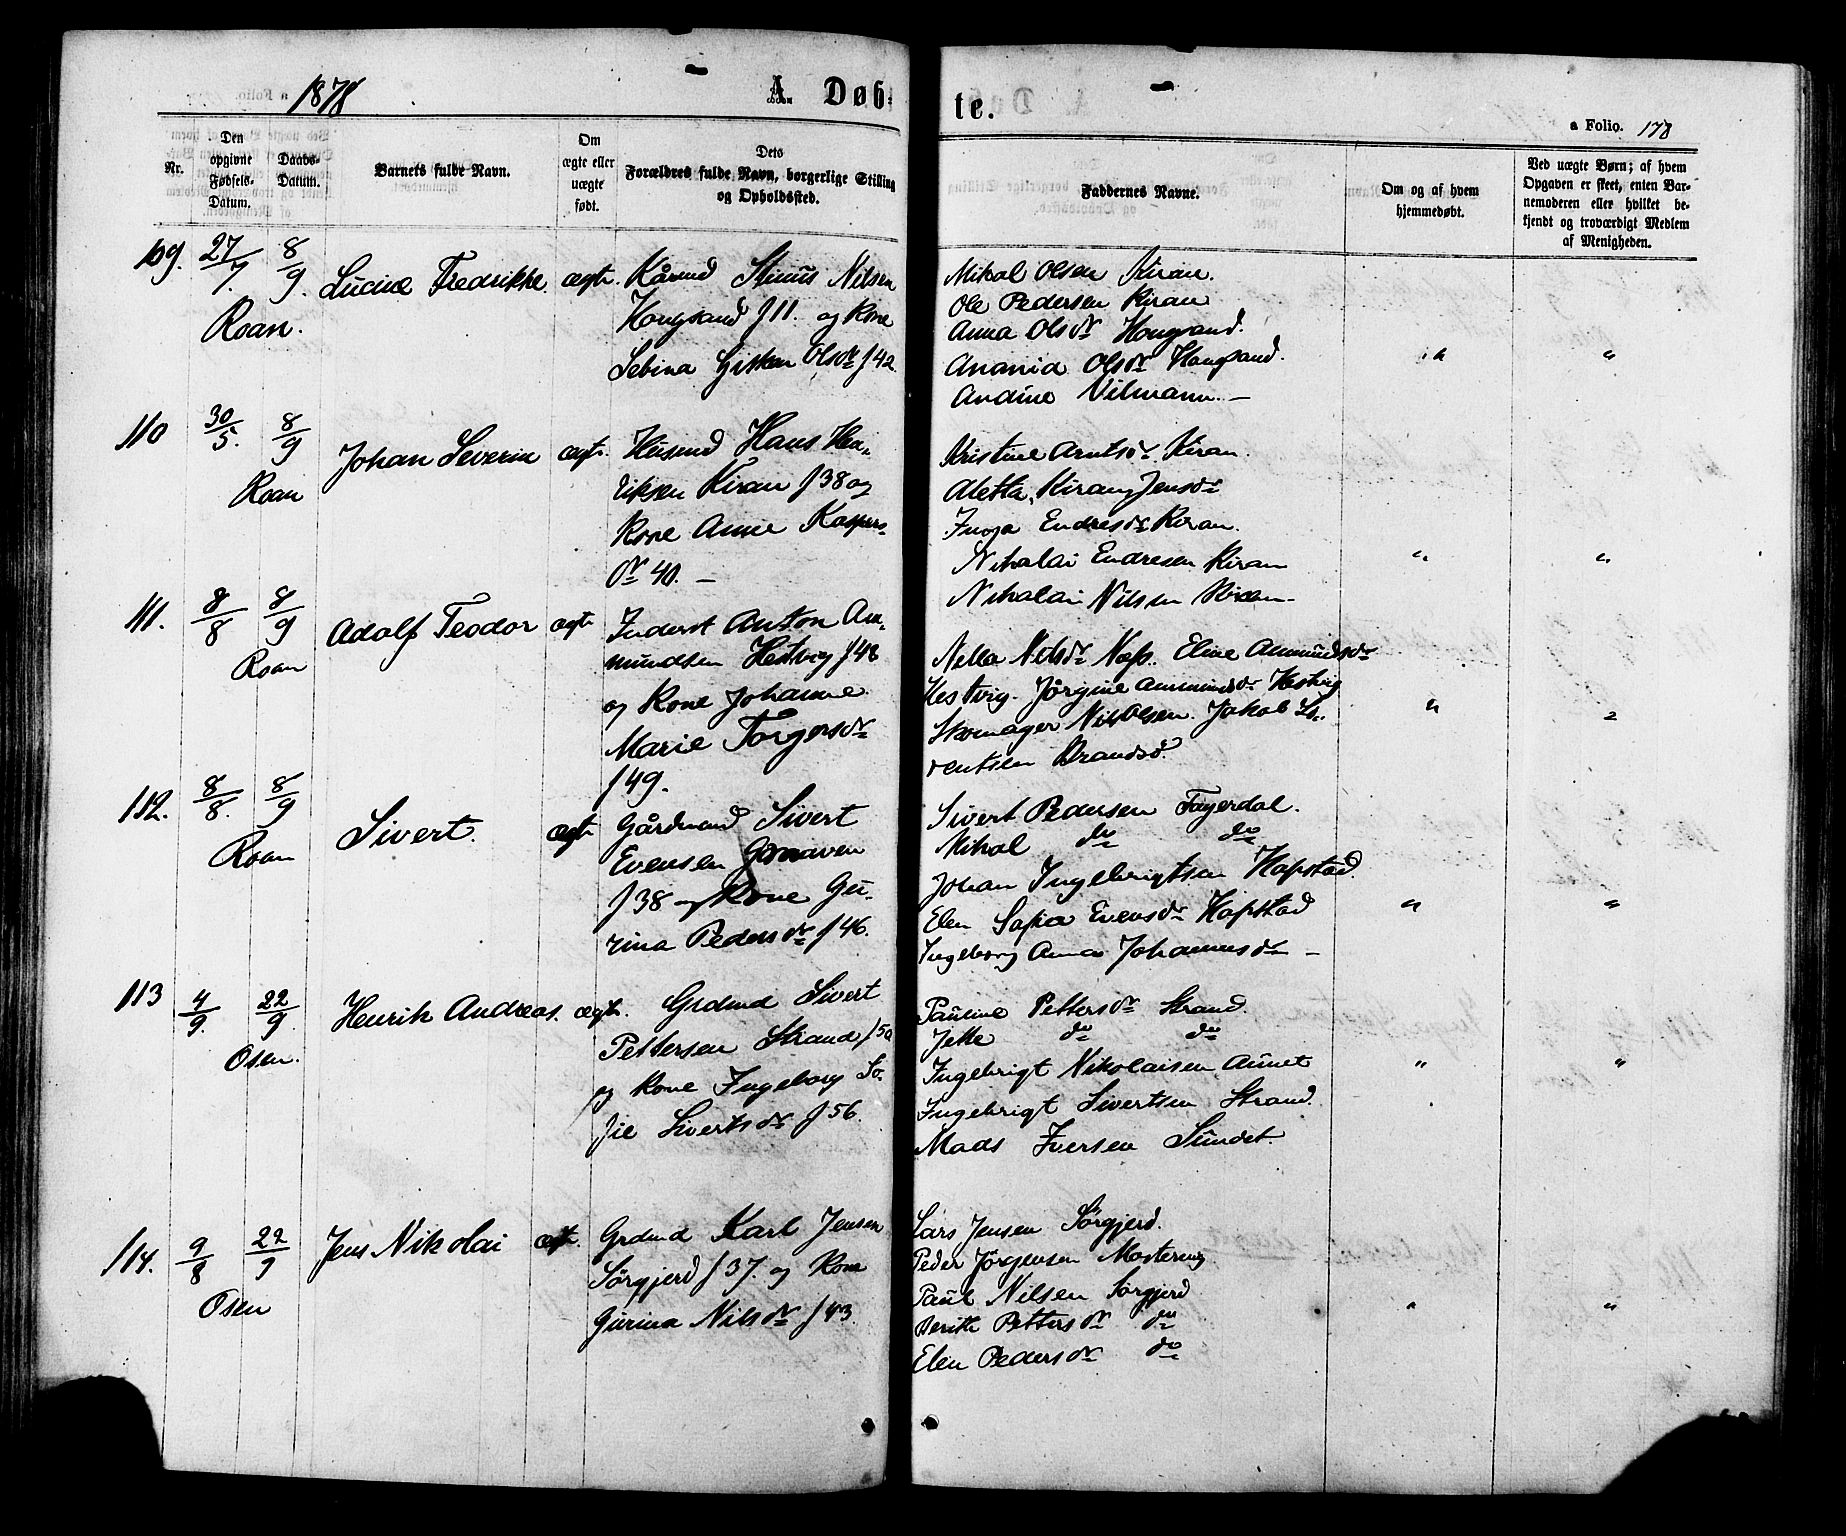 1878
A. Døb-
te.
a Folio. 178
Nr.
Den opgivne Fødsels-Datum.
Daabs-Datum.
Barnets fulde Navn.
Om ægte eller uægte født.
Dets Forældres fulde Navn, borgerlige Stilling og Opholdssted.
Faddernes Navne.
Om og af hvem hjemmedøbt.
Ved uægte Børn; af hvem Opgaven er skeet, enten Barnemoderen eller hvilket bekjendt og troværdigt Medlem af Menigheden.
109. 27/7. 8/9. Lucine Fredrikke ægte. Kårmd Nilsen
Roan. Hongsand f 11. og Kone
Sebina Olsdr f 42
Mikal Olsen Kiran.
Ole Pedersen Kiran
Anna Olsdr Hongsand.
Anania Olsdr Hongsand. " "
Andine Vilmann —
110 30/5. 8/9 Johan Severin ægte. Husmd Hans Hen-
Roan riksen Kiran f 38 og
Kone Anne Kaspers-
dr 40. —
Kristine Arntsdr Kiran.
Aletta Kiran Jensdr
Inga Endresdr Kiran.
Nikolai Endresen Kiran " "
Nikolai Nilsen Kiran
111. 8/8 8/9 Adolf Teodor ægte Inderst Anton Am-
Roan mundsen Hestvig f 48
og Kone Johanne
Marie Torgersdr
f 49.
Nella Nilsdr Næss. Eline Ammundsdr
Hestvig. Jørgine Ammundsdr Hestvig
Skomager Nils Olsen. Jakob Lo- " "
rentsen
112. 8/8. 8/9 Sivert. ægte Gårdmand Sivert
Roan Evensen
f 38 og Kone Gu-
rina Pedersdr f 46.
Sivert Pedersen Fagerdal.
Mikal do do
Johan Ingebrigtsen Hopstad
Elen Sofia Evensdr Hopstad " "
Ingeborg Anna Johannesdr —
113 4/9. 22/9. Henrik Andreas. ægte. Grdmd Sivert
Osen. Pettersen Strand f 50
og Kone Ingeborg So-
fie Sivertsdr f 56.
Pauline Pettersdr Strand.
Jette do do
Ingebrigt Nikolaisen Aunet " "
Ingebrigt Sivertsen Strand.
Mads Iversen Sundet.
114. 9/8 22/9 Jens Nikolai ægte. Grdmd Karl Jensen
Osen Sørgjerd f 37. og Kone
Gurina Nilsdr f 43.
Lars Jensen Sørgjerd.
Peder Jørgensen
Paul Nilsen Sørgjerd
Berith Pettersdr do " "
Elen Pedersdr do